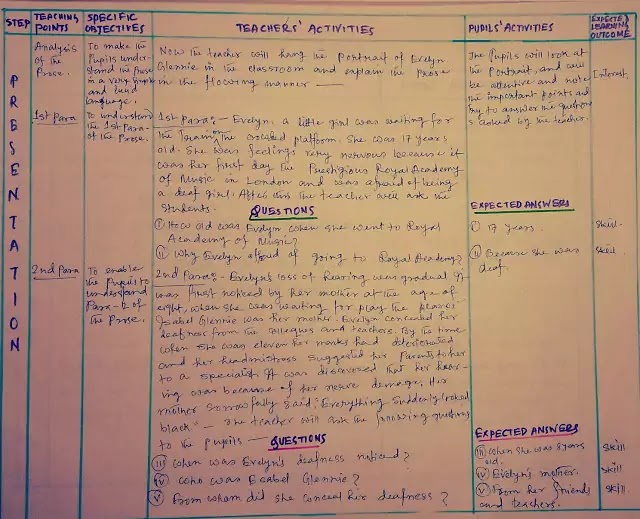 STEP
TEACHING POINTS
SPECIFIC OBJECTIVES
TEACHERS' ACTIVITIES
PUPILS' ACTIVITIES
EXPECTED LEARNING OUTCOME
PRESENTATION
Analysis
of the
Prose.
To make the
Pupils under-
stand the prose
in a very simple
and lucid
language.
Now the teacher will hang the Portrait of Evelyn
Glennie in the classroom and explain the prose
in the flowing manner —
The Pupils will look at
the Portrait, and will
be attentive and note
the important points and
try to answer the questions
asked by the teacher.
Interest,
1st Para
To understand
the 1st Para-
of the Prose.
1st Para:- Evelyn, a little girl was waiting for
the Train, the crowded platform. She was 17 years
old. She was feelings very nervous because it
was her first day the Prestigious Royal Academy
of Music in London and was afraid of being
a deaf girl. After this the teacher will ask the
students.
QUESTIONS
(i) How old was Evelyn when she went to Royal
Academy of Music?
(ii) Why Evelyn afraid of going to Royal Academy?
EXPECTED ANSWERS
(i) 17 years.
(ii) Because she was
deaf.
skill.
skill.
2nd Para
To enable
the Pupils to
understand
Para-2 of
the Prose.
2nd Para:- Evelyn's loss of hearing was gradual. It
was first noticed by her mother at the age of
eight, when she was waiting for play the
Isabel Glennie was her mother. Evelyn concealed her
deafness from the colleques and teachers. By the time
when she was eleven her marks had deteriorated
and her headmistress suggested her Parents to her
to a specialist. It was discovered that her hear-
ing was because of her nerve damage. Her
mother sorrowfully said, "Everything suddenly looked
black" - The teacher will ask the following questions
to the pupils —
QUESTIONS
(iii) When was Evelyn's deafness noticed?
(iv) Who was Esabel Glennie?
(v) From whom did she conceal her deafness?
EXPECTED ANSWERS
(iii) When she was 8 years
old.
(iv) Evelyn's mother.
(v) From her friends
and teachers.
skill
skill
skill.